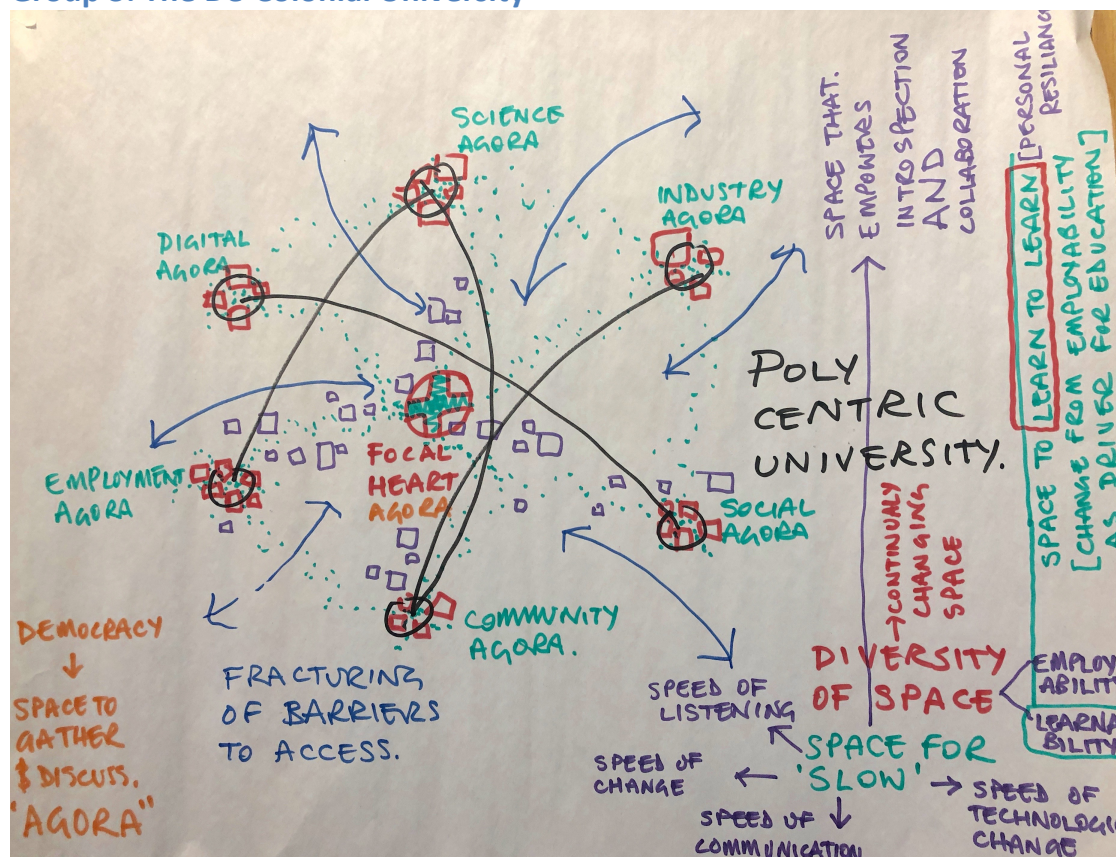 SCIENCE
AGORA
INDUSTRY
AGORA
DIGITAL
AGORA
EMPLOYMENT
AGORA
FOCAL
HEART
AGORA
SOCIAL
AGORA
COMMUNITY
AGORA.
POLY
CENTRIC
UNIVERSITY.
DEMOCRACY
SPACE TO
GATHER
& DISCUSS.
"AGORA"
FRACTURING
OF BARRIERS
TO ACCESS.
SPACE THAT.
EMPOWERS
INTROSPECTION
AND
COLLABORATION
[PERSONAL
RESILIANC
SPACE TO LEARN TO LEARN
[CHANGE FROM EMPLOYABILITY
AS DRIVER FOR EDUCATION]
→CONTINUALY
CHANGING
SPACE
DIVERSITY
OF SPACE
EMPLOY
ABILITY
LEARNA
BILITY
SPACE FOR
'SLOW'
SPEED OF
LISTENING
SPEED OF
CHANGE
SPEED OF
COMMUNICATION
SPEED OF
TECHNOLOGIC
CHANGE